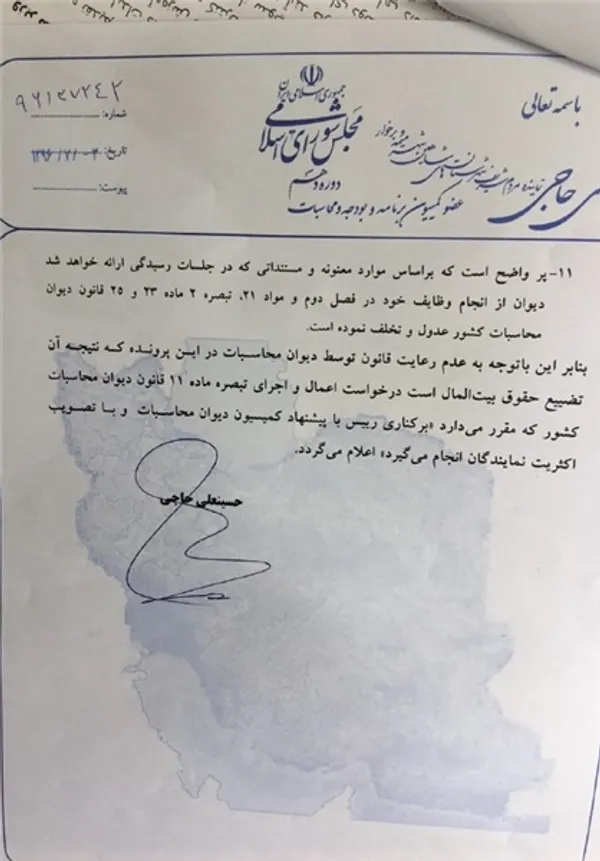 باسمه تعالی
جمهوری اسلامی ایران
مجلس شورای اسلامی
دوره دهم
حاجی
نماینده مردم شریف
عضو کمیسیون برنامه و بودجه و محاسبات
شماره: ۹۶۱۲۷۲۴۲
تاریخ:
پیوست:
۱۱- پر واضح است که براساس موارد معنونه و مستنداتی که در جلسات رسیدگی ارائه خواهد شد
دیوان از انجام وظایف خود در فصل دوم و مواد ۲۱، تبصره ۲ ماده ۲۳ و ۲۵ قانون دیوان
محاسبات کشور عدول و تخلف نموده است.
بنابر این باتوجه به عدم رعایت قانون توسط دیوان محاسبات در این پرونده که نتیجه آن
تضییع حقوق بیت‌المال است درخواست اعمال و اجرای تبصره ماده ۱۱ قانون دیوان محاسبات
کشور که مقرر می‌دارد «برکناری رییس با پیشنهاد کمیسیون دیوان محاسبات و با تصویب
اکثریت نمایندگان انجام می‌گیرد» اعلام می‌گردد.
حسینعلی حاجی